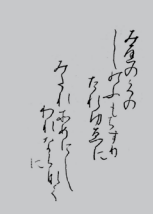 みちのくの
しのふもちすり
たれゆゑに
みたれそめにし
われならなく
に